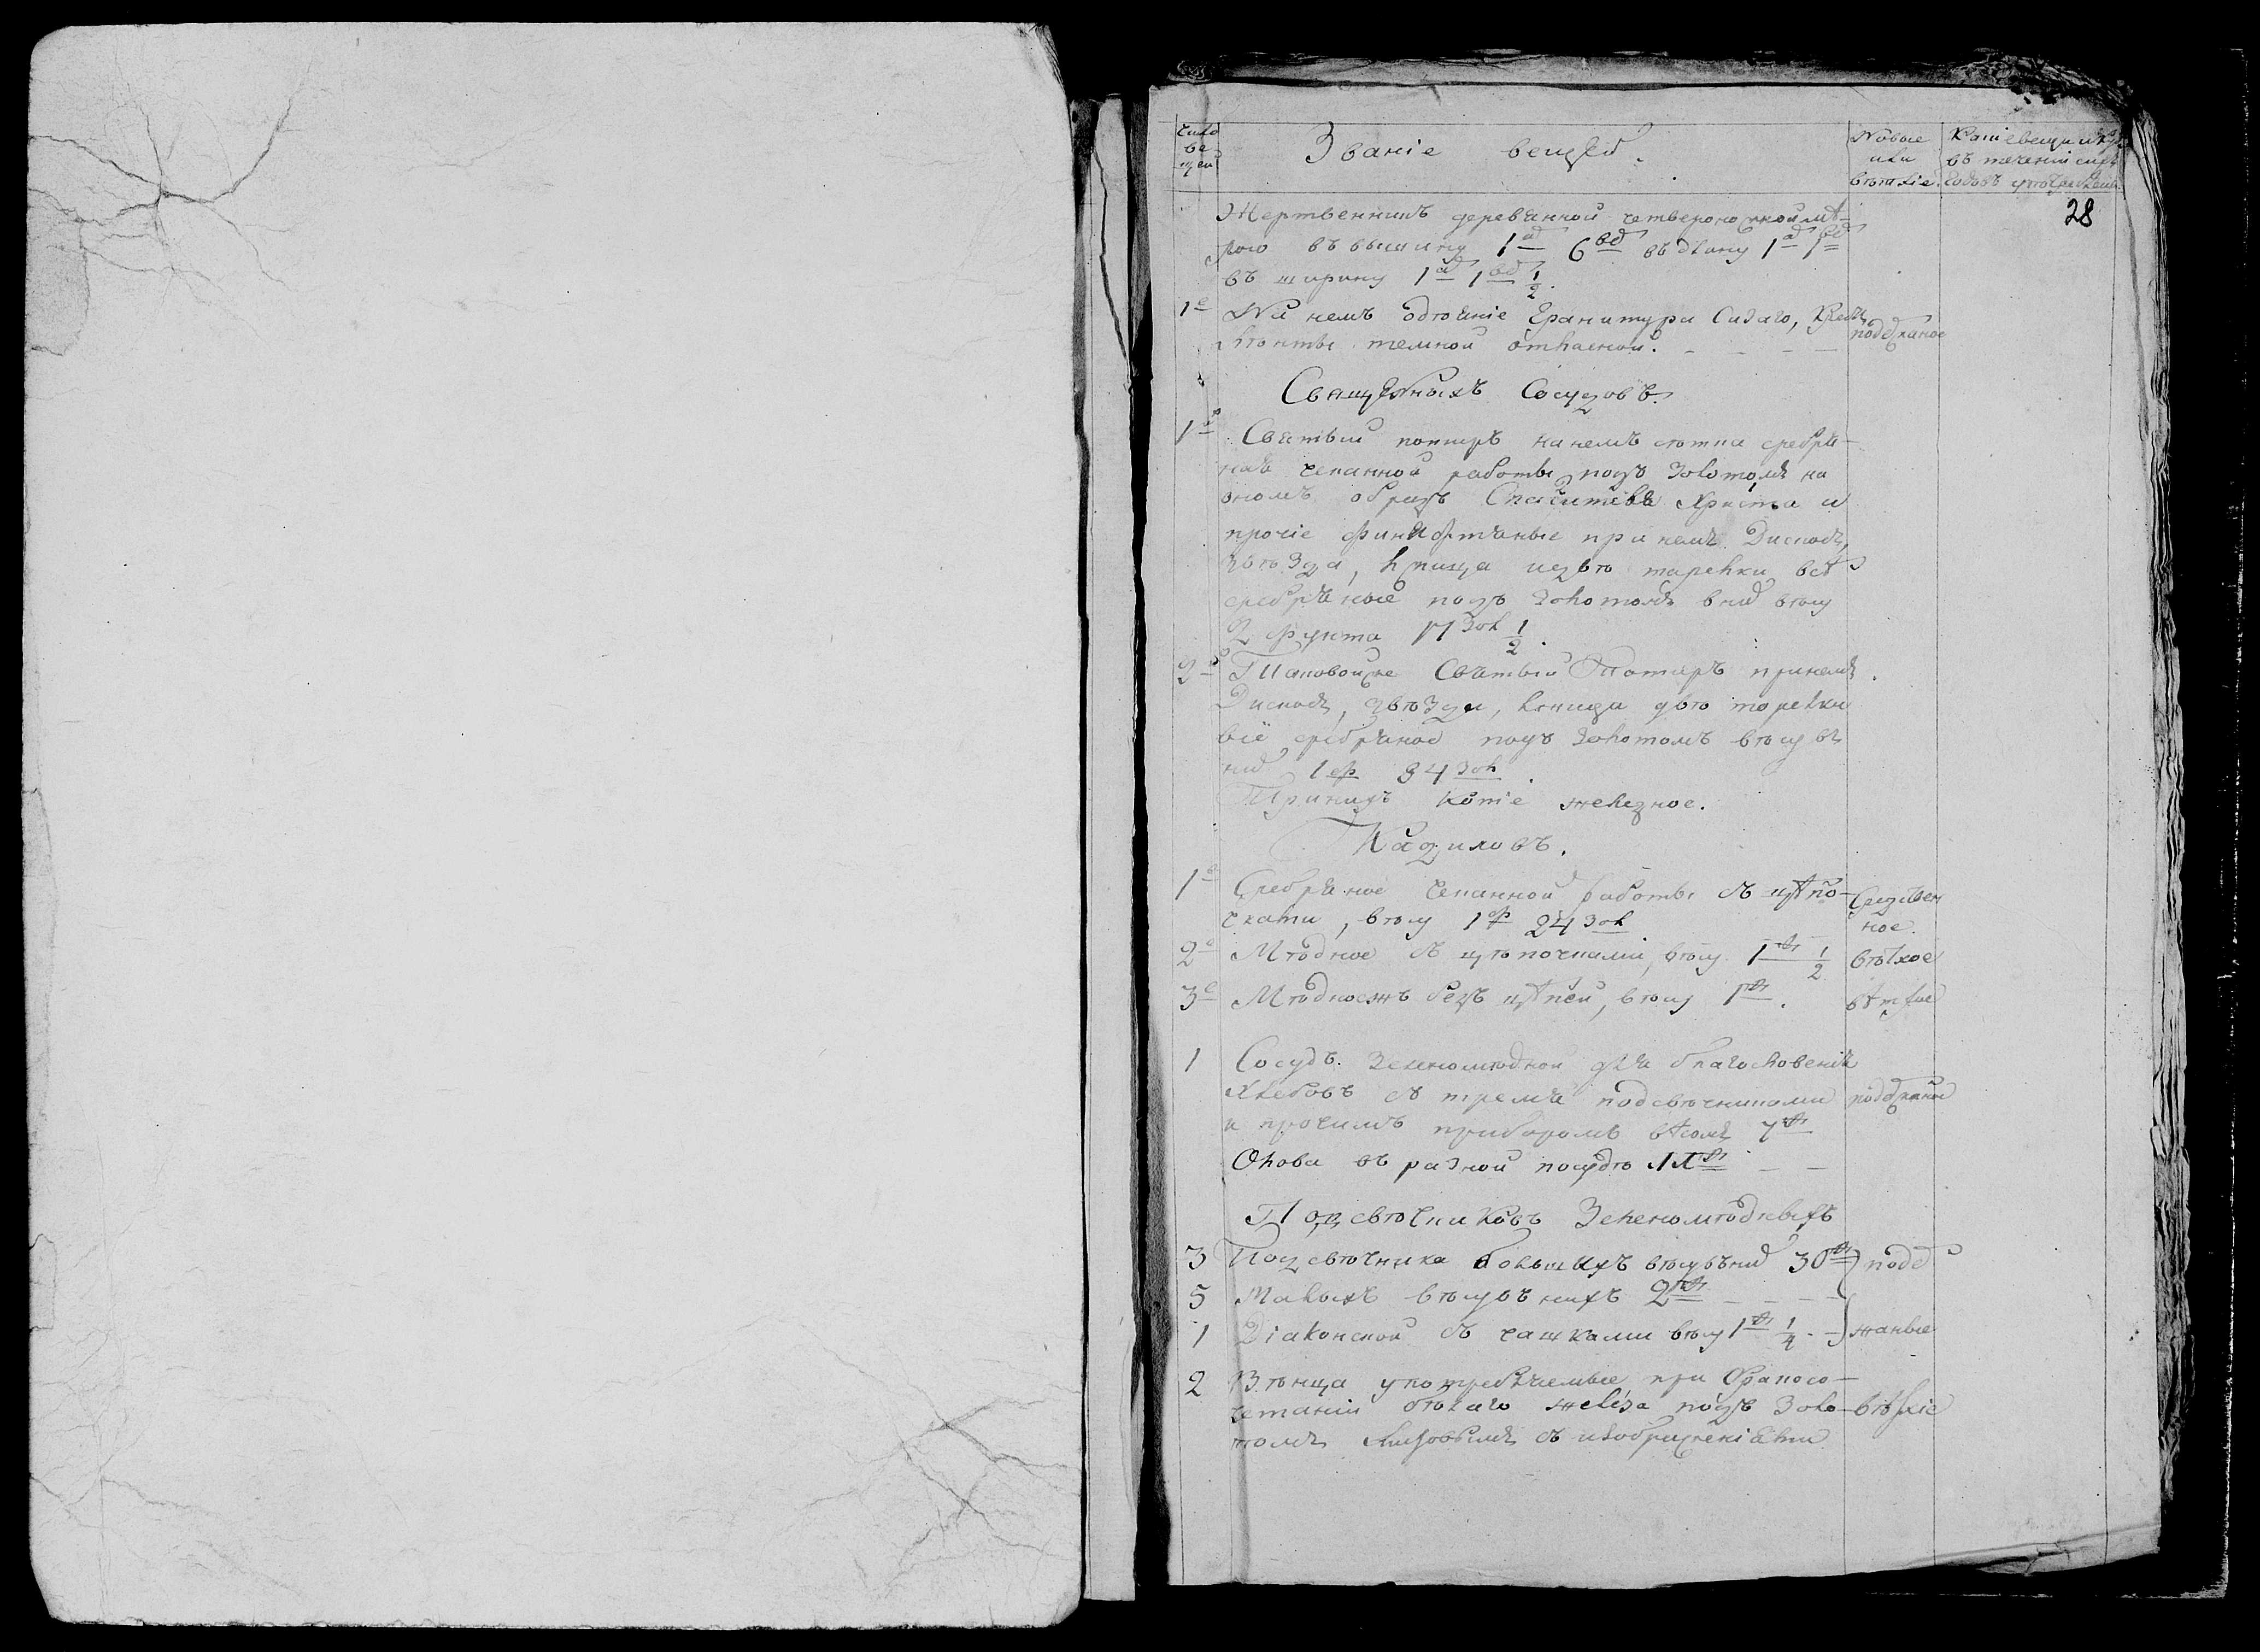 Число вещей
Званіе вещей.
Новые или ветхіе.
Какіе вещи и куда въ теченіи сихъ годовъ употреблены.
28
Жертвенникъ деревянной четвероножной мѣ-
рою въ вышину 1 ар 6 вер въ длину 1 ар 1 вер
въ ширину 1 ар 1 вер 1/2.
1е На немъ одѣяніе Гранитура Сизаго, Крестъ
темной поддержаное
Священныхъ Сосудовъ.
1й Святый потиръ на немъ стопка сребря-
ная чеканной работы подъ золотомъ на
ономъ образъ Спасителя Христа и
прочіе финифтяные при немъ Дискосъ,
звѣзда, лжица и двѣ тарелки всѣ
сребряные подъ золотомъ въ нихъ вѣсу
2 фунта 71 зол 1/2.
2й Таковой же Святый Потиръ при немъ
Дискосъ, звѣзда, лжица двѣ торелки
всё сребряное подъ золотомъ вѣсу въ
нихъ 1 ф 84 зол.
При нихъ копіе железное.
Кадиловъ.
1е Сребряное чеканной работы съ цѣпо-
чками, вѣсу 1 ф 24 зол
Средствен
ное.
2е Мѣдное съ цѣпочками, вѣсу 1 ф 1/2 вѣтхое
3е Мѣдноежъ безъ цѣпей, вѣсу 1 ф. вѣтхое
1 Сосудъ зеленомѣдной для благословенія
Хлебовъ съ тремя подсвѣчниками поддержаной
и прочимъ приборомъ вѣсомъ 7 ф
Олова въ разной посудѣ
Подсвѣчниковъ Зеленомѣдныхъ
3 Подсвѣчника большихъ вѣсу въ нихъ 30 ф подер
5 Малыхъ вѣсу въ нихъ 2 ф
1 Діаконской съ чашками вѣсу 1 ф 1/4. жаные
2 Вѣнца употребляемые при бракосо-
четаніи бѣлаго желѣза подъ золо- вѣтхіе
томъ съ изображеніями